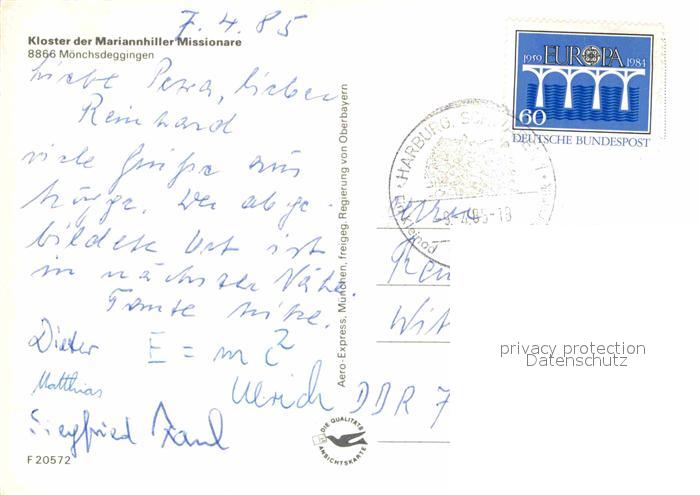 7.4.85
Kloster der Mariannhiller Missionare
8866 Mönchsdeggingen
Liebe Petra, lieber
Reinhard
viele Grüße aus
Der abge-
bildete Ort ist
in nächster Nähe.
Tante
Dieter E = mc²
Matthias Ulrich
Siegfried Paul
F 20572
Aero-Express, München, freigeg. Regierung von Oberbayern
DIE QUALITÄTS
ANSICHTSKARTE
EUROPA
1959 1984
60
DEUTSCHE BUNDESPOST
HARBURG, SCHWAB
-9.4.85-18
Wit
DDR 7
privacy protection
Datenschutz